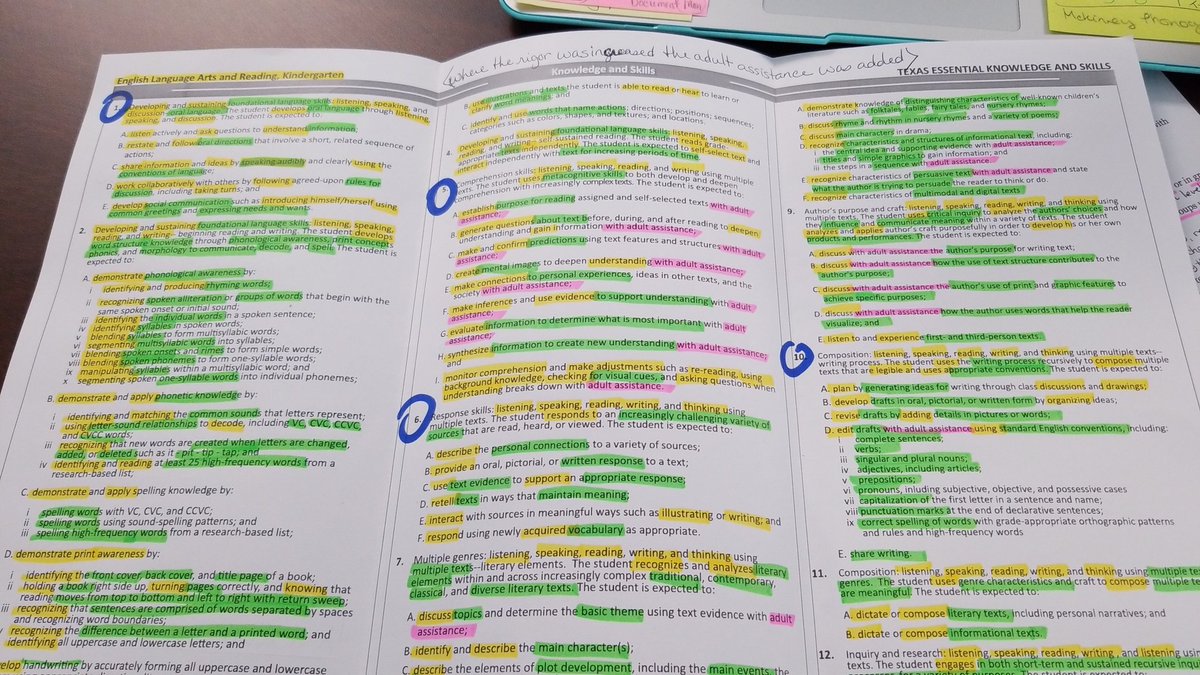 Document
Mckinney Phono
(where the rigor was increased the adult assistance was added)
English Language Arts and Reading, Kindergarten
Knowledge and Skills
TEXAS ESSENTIAL KNOWLEDGE AND SKILLS
1. Developing and sustaining foundational language skills: listening, speaking, and
discussion--oral language. The student develops oral language through listening,
speaking, and discussion. The student is expected to:
A. listen actively and ask questions to understand information;
B. restate and follow oral directions that involve a short, related sequence of
actions;
C. share information and ideas by speaking audibly and clearly using the
conventions of language;
D. work collaboratively with others by following agreed-upon rules for
discussion, including taking turns; and
E. develop social communication such as introducing himself/herself using
common greetings and expressing needs and wants.
2. Developing and sustaining foundational language skills: listening, speaking,
reading, and writing-- beginning reading and writing. The student develops
word structure knowledge through phonological awareness, print concepts,
phonics, and morphology to communicate, decode, and spell. The student is
expected to:
A. demonstrate phonological awareness by:
i identifying and producing rhyming words;
ii recognizing spoken alliteration or groups of words that begin with the
same spoken onset or initial sound;
iii identifying the individual words in a spoken sentence;
iv identifying syllables in spoken words;
v blending syllables to form multisyllabic words;
vi segmenting multisyllabic words into syllables;
vii blending spoken onsets and rimes to form simple words;
viii blending spoken phonemes to form one-syllable words;
ix manipulating syllables within a multisyllabic word; and
x segmenting spoken one-syllable words into individual phonemes;
B. demonstrate and apply phonetic knowledge by:
i identifying and matching the common sounds that letters represent;
ii using letter-sound relationships to decode, including VC, CVC, CCVC,
and CVCC words;
iii recognizing that new words are created when letters are changed,
added, or deleted such as it - pit - tip - tap; and
iv identifying and reading at least 25 high-frequency words from a
research-based list;
C. demonstrate and apply spelling knowledge by:
i spelling words with VC, CVC, and CCVC;
ii spelling words using sound-spelling patterns; and
iii spelling high-frequency words from a research-based list;
D. demonstrate print awareness by:
i identifying the front cover, back cover, and title page of a book;
ii holding a book right side up, turning pages correctly, and knowing that
reading moves from top to bottom and left to right with return sweep;
iii recognizing that sentences are comprised of words separated by spaces
and recognizing word boundaries;
recognizing the difference between a letter and a printed word; and
identifying all uppercase and lowercase letters; and
elop handwriting by accurately forming all uppercase and lowercase
B. use illustrations and texts the student is able to read or hear to learn or
clarify word meanings; and
C. identify and use words that name actions; directions; positions; sequences;
categories such as colors, shapes, and textures; and locations.
4. Developing and sustaining foundational language skills: listening, speaking,
reading, and writing-- self-sustained reading. The student reads grade-
appropriate texts independently. The student is expected to self-select text and
interact independently with text for increasing periods of time.
Comprehension skills: listening, speaking, reading, writing, and thinking using
multiple texts. The student uses metacognitive skills to both develop and deepen
comprehension with increasingly complex texts. The student is expected to:
A. establish purpose for reading assigned and self-selected texts with adult
assistance;
B. generate questions about text before, during, and after reading to deepen
understanding and gain information with adult assistance;
C. make and confirm predictions using text features and structures with adult
assistance;
D. create mental images to deepen understanding with adult assistance;
E. make connections to personal experiences, ideas in other texts, and the
society with adult assistance;
F. make inferences and use evidence to support understanding with adult
assistance;
G. evaluate information to determine what is most important with adult
assistance;
H. synthesize information to create new understanding with adult assistance;
and
I. monitor comprehension and make adjustments such as re-reading, using
background knowledge, checking for visual cues, and asking questions when
understanding breaks down with adult assistance.
6. Response skills: listening, speaking, reading, writing, and thinking using
multiple texts. The student responds to an increasingly challenging variety of
sources that are read, heard, or viewed. The student is expected to:
A. describe the personal connections to a variety of sources;
B. provide an oral, pictorial, or written response to a text;
C. use text evidence to support an appropriate response;
D. retell texts in ways that maintain meaning;
E. interact with sources in meaningful ways such as illustrating or writing; and
F. respond using newly acquired vocabulary as appropriate.
7. Multiple genres: listening, speaking, reading, writing, and thinking using
multiple texts--literary elements. The student recognizes and analyzes literary
elements within and across increasingly complex traditional, contemporary,
classical, and diverse literary texts. The student is expected to:
A. discuss topics and determine the basic theme using text evidence with adult
assistance;
B. identify and describe the main character(s);
C. describe the elements of plot development, including the main events, the
A. demonstrate knowledge of distinguishing characteristics of well-known children's
literature such as folktales, fables, fairy tales, and nursery rhymes;
B. discuss rhyme and rhythm in nursery rhymes and a variety of poems;
C. discuss main characters in drama;
D. recognize characteristics and structures of informational text, including:
i the central idea and supporting evidence with adult assistance;
ii titles and simple graphics to gain information; and
iii the steps in a sequence with adult assistance;
E. recognize characteristics of persuasive text with adult assistance and state
what the author is trying to persuade the reader to think or do.
F. recognize characteristics of multimodal and digital texts
9. Author's purpose and craft: listening, speaking, reading, writing, and thinking using
multiple texts. The student uses critical inquiry to analyze the authors' choices and how
they influence and communicate meaning within a variety of texts. The student
analyzes and applies author's craft purposefully in order to develop his or her own
products and performances. The student is expected to:
A. discuss with adult assistance the author's purpose for writing text;
B. discuss with adult assistance how the use of text structure contributes to the
author's purpose;
C. discuss with adult assistance the author's use of print and graphic features to
achieve specific purposes;
D. discuss with adult assistance how the author uses words that help the reader
visualize; and
E. listen to and experience first- and third-person texts.
10. Composition: listening, speaking, reading, writing, and thinking using multiple texts--
writing process. The student uses the writing process recursively to compose multiple
texts that are legible and uses appropriate conventions. The student is expected to:
A. plan by generating ideas for writing through class discussions and drawings;
B. develop drafts in oral, pictorial, or written form by organizing ideas;
C. revise drafts by adding details in pictures or words;
D. edit drafts with adult assistance using standard English conventions, including:
complete sentences;
ii verbs;
iii singular and plural nouns;
iv adjectives, including articles;
v prepositions;
vi pronouns, inluding subjective, objective, and possessive cases
vii capitalization of the first letter in a sentence and name;
viii punctuation marks at the end of declarative sentences;
ix correct spelling of words with grade-appropriate orthographic patterns
and rules and high-frequency words
E. share writing.
11. Composition: listening, speaking, reading, writing, and thinking using multiple te
genres. The student uses genre characteristics and craft to compose multiple te
are meaningful. The student is expected to:
A. dictate or compose literary texts, including personal narratives; and
B. dictate or compose informational texts.
12. Inquiry and research: listening, speaking, reading, writing, and listening using
texts. The student engages in both short-term and sustained recursive inqui